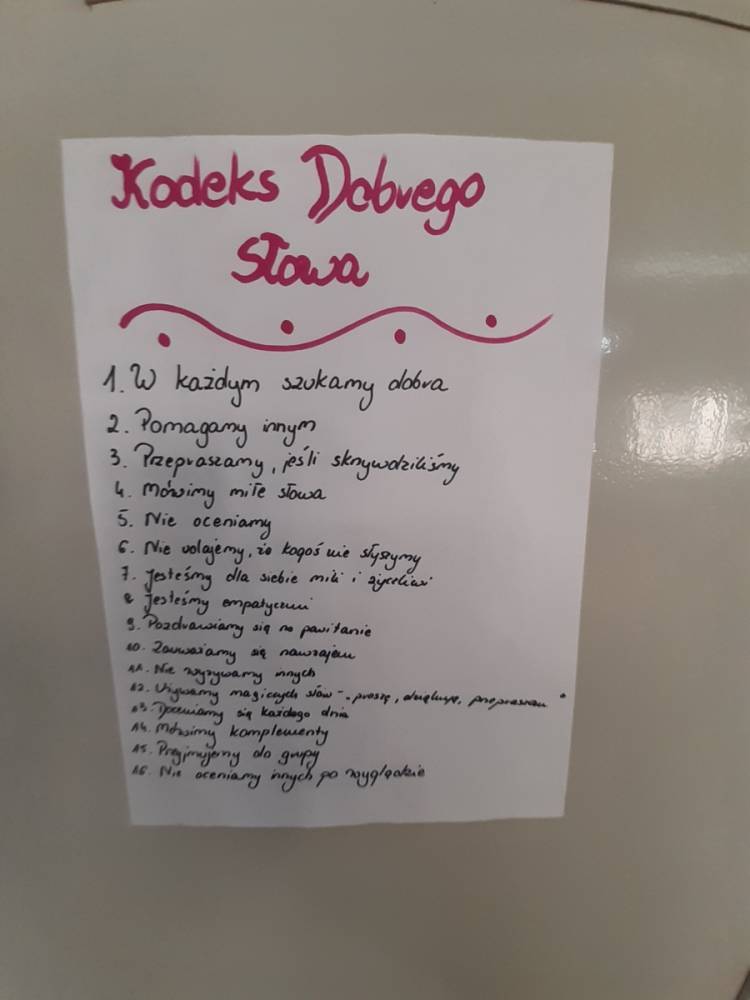 Kodeks Dobrego
Słowa
1. W każdym szukamy dobra
2. Pomagamy innym
3. Przepraszamy, jeśli skrzywdziliśmy
4. Mówimy miłe słowa
5. Nie oceniamy
6. Nie udajemy, że kogoś nie słyszymy
7. Jesteśmy dla siebie mili i życzliwi
8 Jesteśmy empatyczni
9. Pozdrawiamy się na powitanie
10. Zauważamy się nawzajem
11. Nie wyzywamy innych
12. Używamy magicznych słów - "proszę, dziękuję, przepraszam"
13. Doceniamy się każdego dnia
14. Mówimy komplementy
15. Przyjmujemy do grupy
16. Nie oceniamy innych po wyglądzie